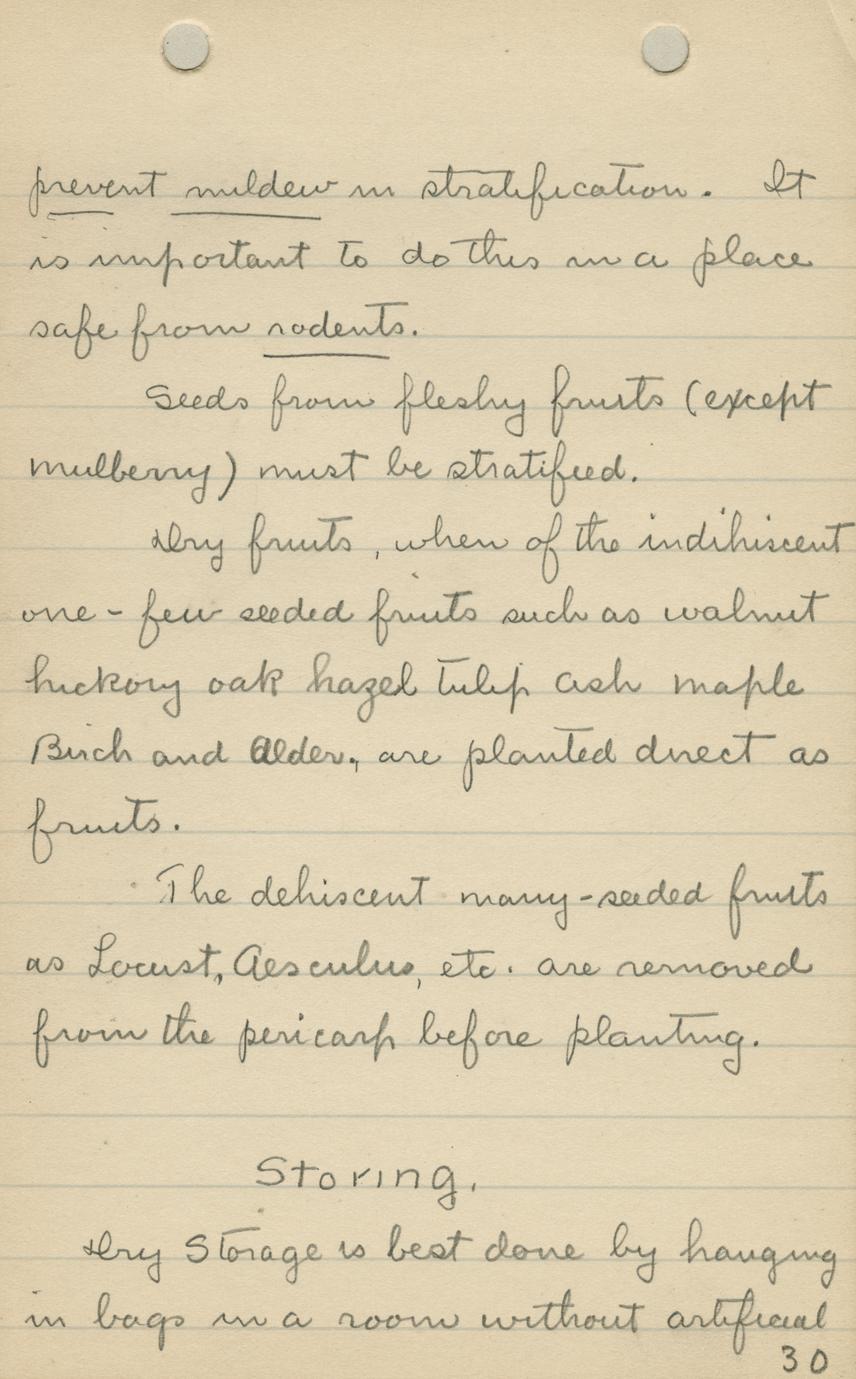 prevent mildew in stratification. It
is important to do this in a place
safe from rodents.
Seeds from fleshy fruits (except
mulberry) must be stratified.
Dry fruits, when of the indihiscent
one-few seeded fruits such as walnut
hickory oak hazel tulip ash maple
Birch and Alder., are planted direct as
fruits.
The dehiscent many-seeded fruits
as Locust, Aesculus, etc. are removed
from the pericarp before planting.
Storing.
Dry Storage is best done by hanging
in bags in a room without artificial
30